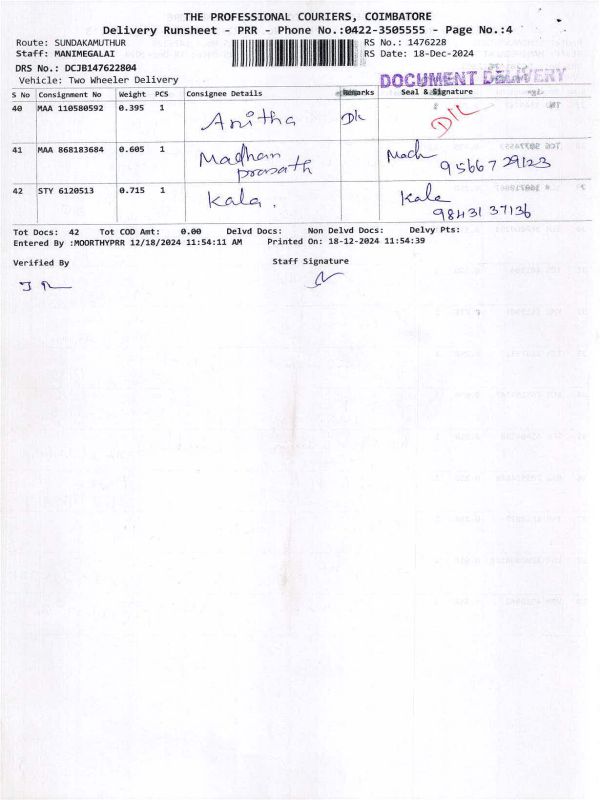 THE PROFESSIONAL COURIERS, COIMBATORE
Delivery Runsheet - PRR - Phone No.:0422-3505555 - Page No.:4
Route: SUNDAKAMUTHUR RS No.: 1476228
Staff: MANIMEGALAI RS Date: 18-Dec-2024
DRS No.: DCJB147622804
Vehicle: Two Wheeler Delivery
DOCUMENT DELIVERY
S No Consignment No Weight PCS Consignee Details Remarks Seal & Signature
40 MAA 110580592 0.395 1 Anitha
41 MAA 868183684 0.605 1 Madhan prasath Madh 9566729123
42 STY 6120513 0.715 1 Kala. Kala 9843137136
Tot Docs: 42 Tot COD Amt: 0.00 Delvd Docs: Non Delvd Docs: Delvy Pts:
Entered By :MOORTHYPRR 12/18/2024 11:54:11 AM Printed On: 18-12-2024 11:54:39
Verified By Staff Signature